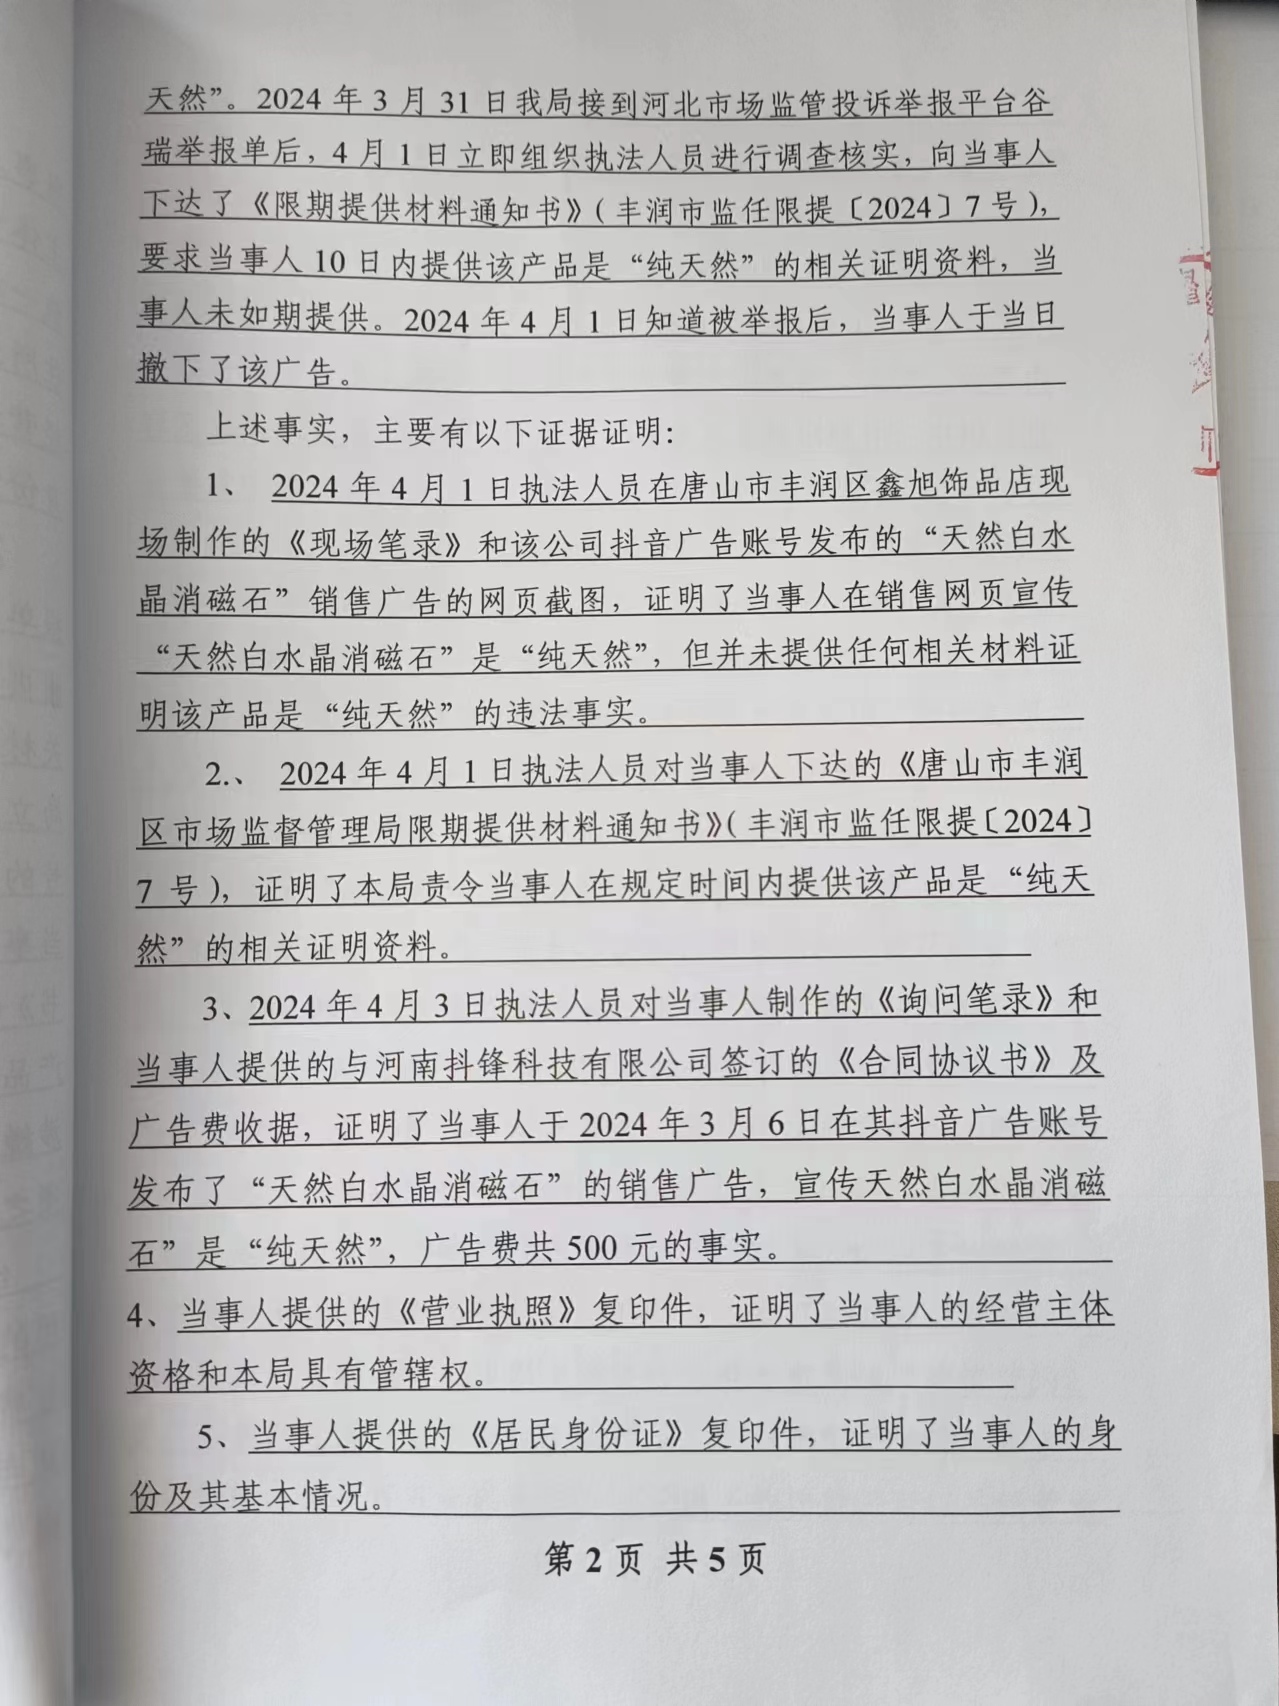 天然”。2024 年 3 月 31 日我局接到河北市场监管投诉举报平台谷
瑞举报单后，4 月 1 日立即组织执法人员进行调查核实，向当事人
下达了《限期提供材料通知书》（丰润市监任限提〔2024〕7 号），
要求当事人 10 日内提供该产品是“纯天然”的相关证明资料，当
事人未如期提供。2024 年 4 月 1 日知道被举报后，当事人于当日
撤下了该广告。
上述事实，主要有以下证据证明：
1、 2024 年 4 月 1 日执法人员在唐山市丰润区鑫旭饰品店现
场制作的《现场笔录》和该公司抖音广告账号发布的“天然白水
晶消磁石”销售广告的网页截图，证明了当事人在销售网页宣传
“天然白水晶消磁石”是“纯天然”，但并未提供任何相关材料证
明该产品是“纯天然”的违法事实。
2.、 2024 年 4 月 1 日执法人员对当事人下达的《唐山市丰润
区市场监督管理局限期提供材料通知书》（丰润市监任限提〔2024〕
7 号），证明了本局责令当事人在规定时间内提供该产品是“纯天
然”的相关证明资料。
3、2024 年 4 月 3 日执法人员对当事人制作的《询问笔录》和
当事人提供的与河南抖锋科技有限公司签订的《合同协议书》及
广告费收据，证明了当事人于 2024 年 3 月 6 日在其抖音广告账号
发布了“天然白水晶消磁石”的销售广告，宣传天然白水晶消磁
石”是“纯天然”，广告费共 500 元的事实。
4、当事人提供的《营业执照》复印件，证明了当事人的经营主体
资格和本局具有管辖权。
5、当事人提供的《居民身份证》复印件，证明了当事人的身
份及其基本情况。
第 2 页 共 5 页